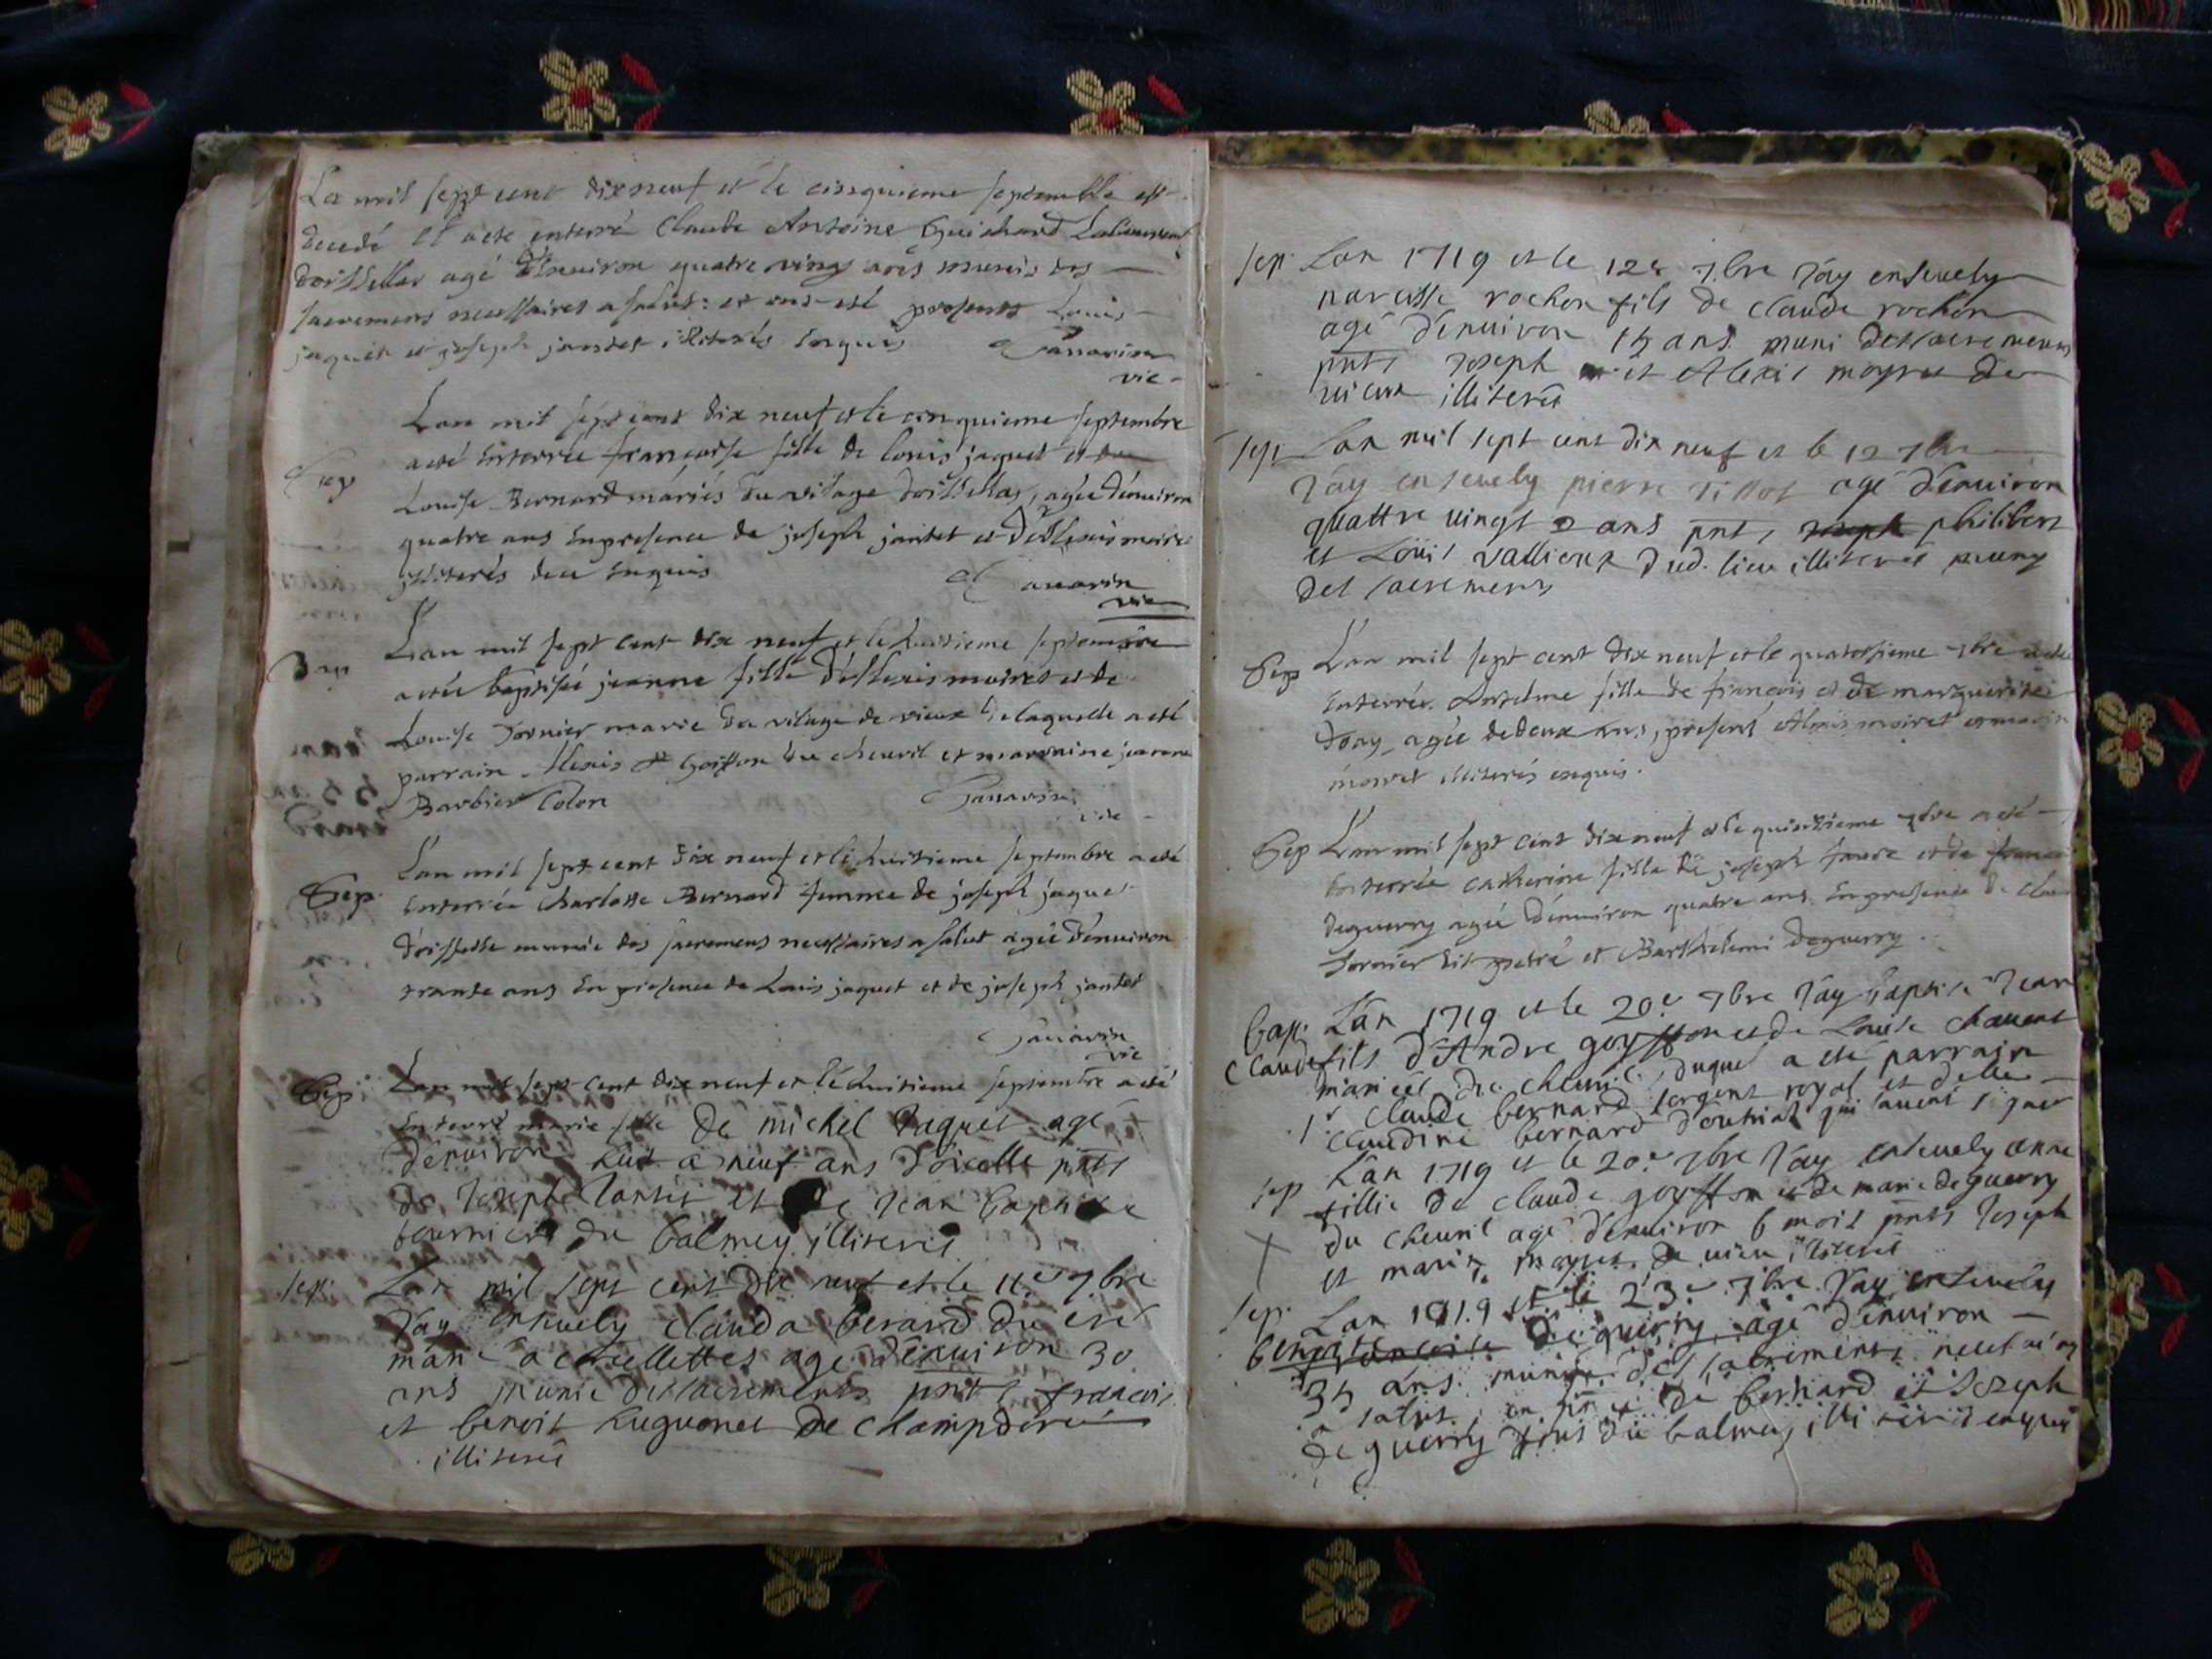 Lan mil sept cent dix neuf et le cinquieme septembre est
decedé et a ete enterré Claude Antoine Guichard
agé d'enuiron quatre ving ans munis des
sacremens necessaires a salut: et ons esté presents Louis
jaquet et joseph jantet illiterés enquis Tanavin
vic
Lan mil sept cent dix neuf et le cinquieme septembre
Sep a eté enterrée francoise fille de louis jaquet et de
Louise Bernard mariés du vilage doissellas, agée d'enuiron
quatre ans en presence de joseph jantet et d'Allexis moiret
illiterés deu enquis Tanavin
vic
Lan mil sept cent dix neuf et le huitieme septembre
Bap a etée baptisée jeanne fille d'Allexis moiret et de
Louise Tornier marie du vilage de vieux de laquelle a esté
parrain Alexis goiffon du cheuril et marraine jeanne
Barbier Colon Tanavin
vic
Lan mil sept cent dix neuf et le huitieme septembre a eté
Sep. enterrée Charlotte Bernard femme de joseph jaquet
d'oisselle munie des sacremens necessaires a salut agée d'enuiron
trante ans en presence de Louis jaquet et de joseph jantet
Tanavin
vic
Sep. Lan mil sept cent dix neuf et le huitieme septembre a eté
enterré marie fille de michel Jaquet agé
d'enuiron huit a neuf ans d'oicelle pnts
de Joseph Jantet et de Jean baptiste
tournier du balmey illiteres
sep: Lan mil sept cent dix neuf et le 11.e 7.bre
J'ay enseuely clauda berard du
marié a agé d'enuiron 30
ans munie des sacrements pnts francois
et benoit huguonet de champdor
illiteré
sep: Lan 1719 et le 12e 7.bre J'ay enseuely
narcisse rochon fils de claude rochon
agé d'enuiron 15 ans muni des sacremens
pnts Joseph et Alexis moyret de
uieux illiteré
sep: Lan mil sept cent dix neuf et le 12 7bre
J'ay enseuely pierre tissot agé d'enuiron
quattre uingt 2 ans pnts, philibert
et Loüis vallieux dud. lieu illiteres muny
des sacremens
Sep Lan mil sept cent dix neuf et le quatorsieme 7bre a eté
enterrée Anselme fille de francois et de marguerite
agée de deux ans, present Alexis moiret et marin
moiret illiterés enquis.
Sep Lan mil sept cent dix neuf et le quinzieme 7bre a eté
enterrée catherine fille de joseph favre et de
deguerry agée d'enuiron quatre ans en presence de
tornier dit et Barthelemi deguerry.
bap: Lan 1719 et le 20.e 7bre J'ay baptise Jean
claude fils d'Andre goyffon et de Louise chauent
mariés du cheuril, duquel a eté parrain
Sr claude bernard sergent royal et delle
claudine bernard d'outriat qui sauent signer
sep Lan 1719 et le 20.e 7bre J'ay enseuely anne
fillie de claude goyffon et de marie deguerry
du cheuril agé d'enuiron 6 mois pnts Joseph
et marin moyret de uieu illiteré
sep: Lan 1719 et le 23e 7bre J'ay enseuely
benoit deguerry, agé d'enuiron
35 ans munie des sacrements
a salut en de bernard et Joseph
de guerry tous du balmey illiteres enquis